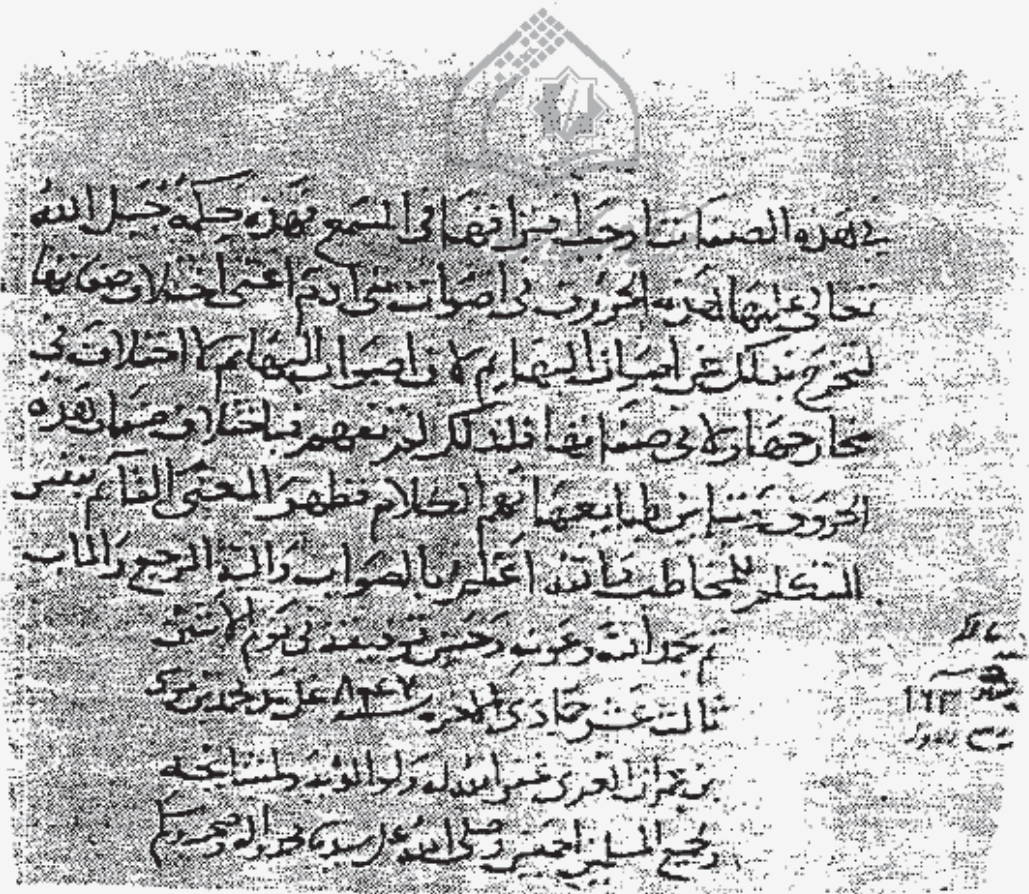 في هذه الصفات اوجب افتراقها في السمع فهذه حكمة جبل الله
تعالى عليها هذه الحروف في اصوات بني ادم اعني اختلاف صفاتها
لتخرج بذلك عن اصوات البهايم لان اصوات البهايم لا اختلاف في
مخارجها ولا في صفاتها فلذلك لم تفهم فباختلاف صفات هذه
الحروف وتباين طبايعها فهم الكلام فظهر المعنى القآيم بنفس
المتكلم للمخاطب والله اعلم بالصواب واليه المرجع والماب
تم بحمد الله وعونه وحسن توفيقه في يوم الاثنين
ثالث عشر جمادى الاخرة سنة على يد
بن غفر الله له ولوالديه ولمشايخه
ولجميع المسلمين اجمعين وصلى الله على سيدنا محمد واله وصحبه وسلم